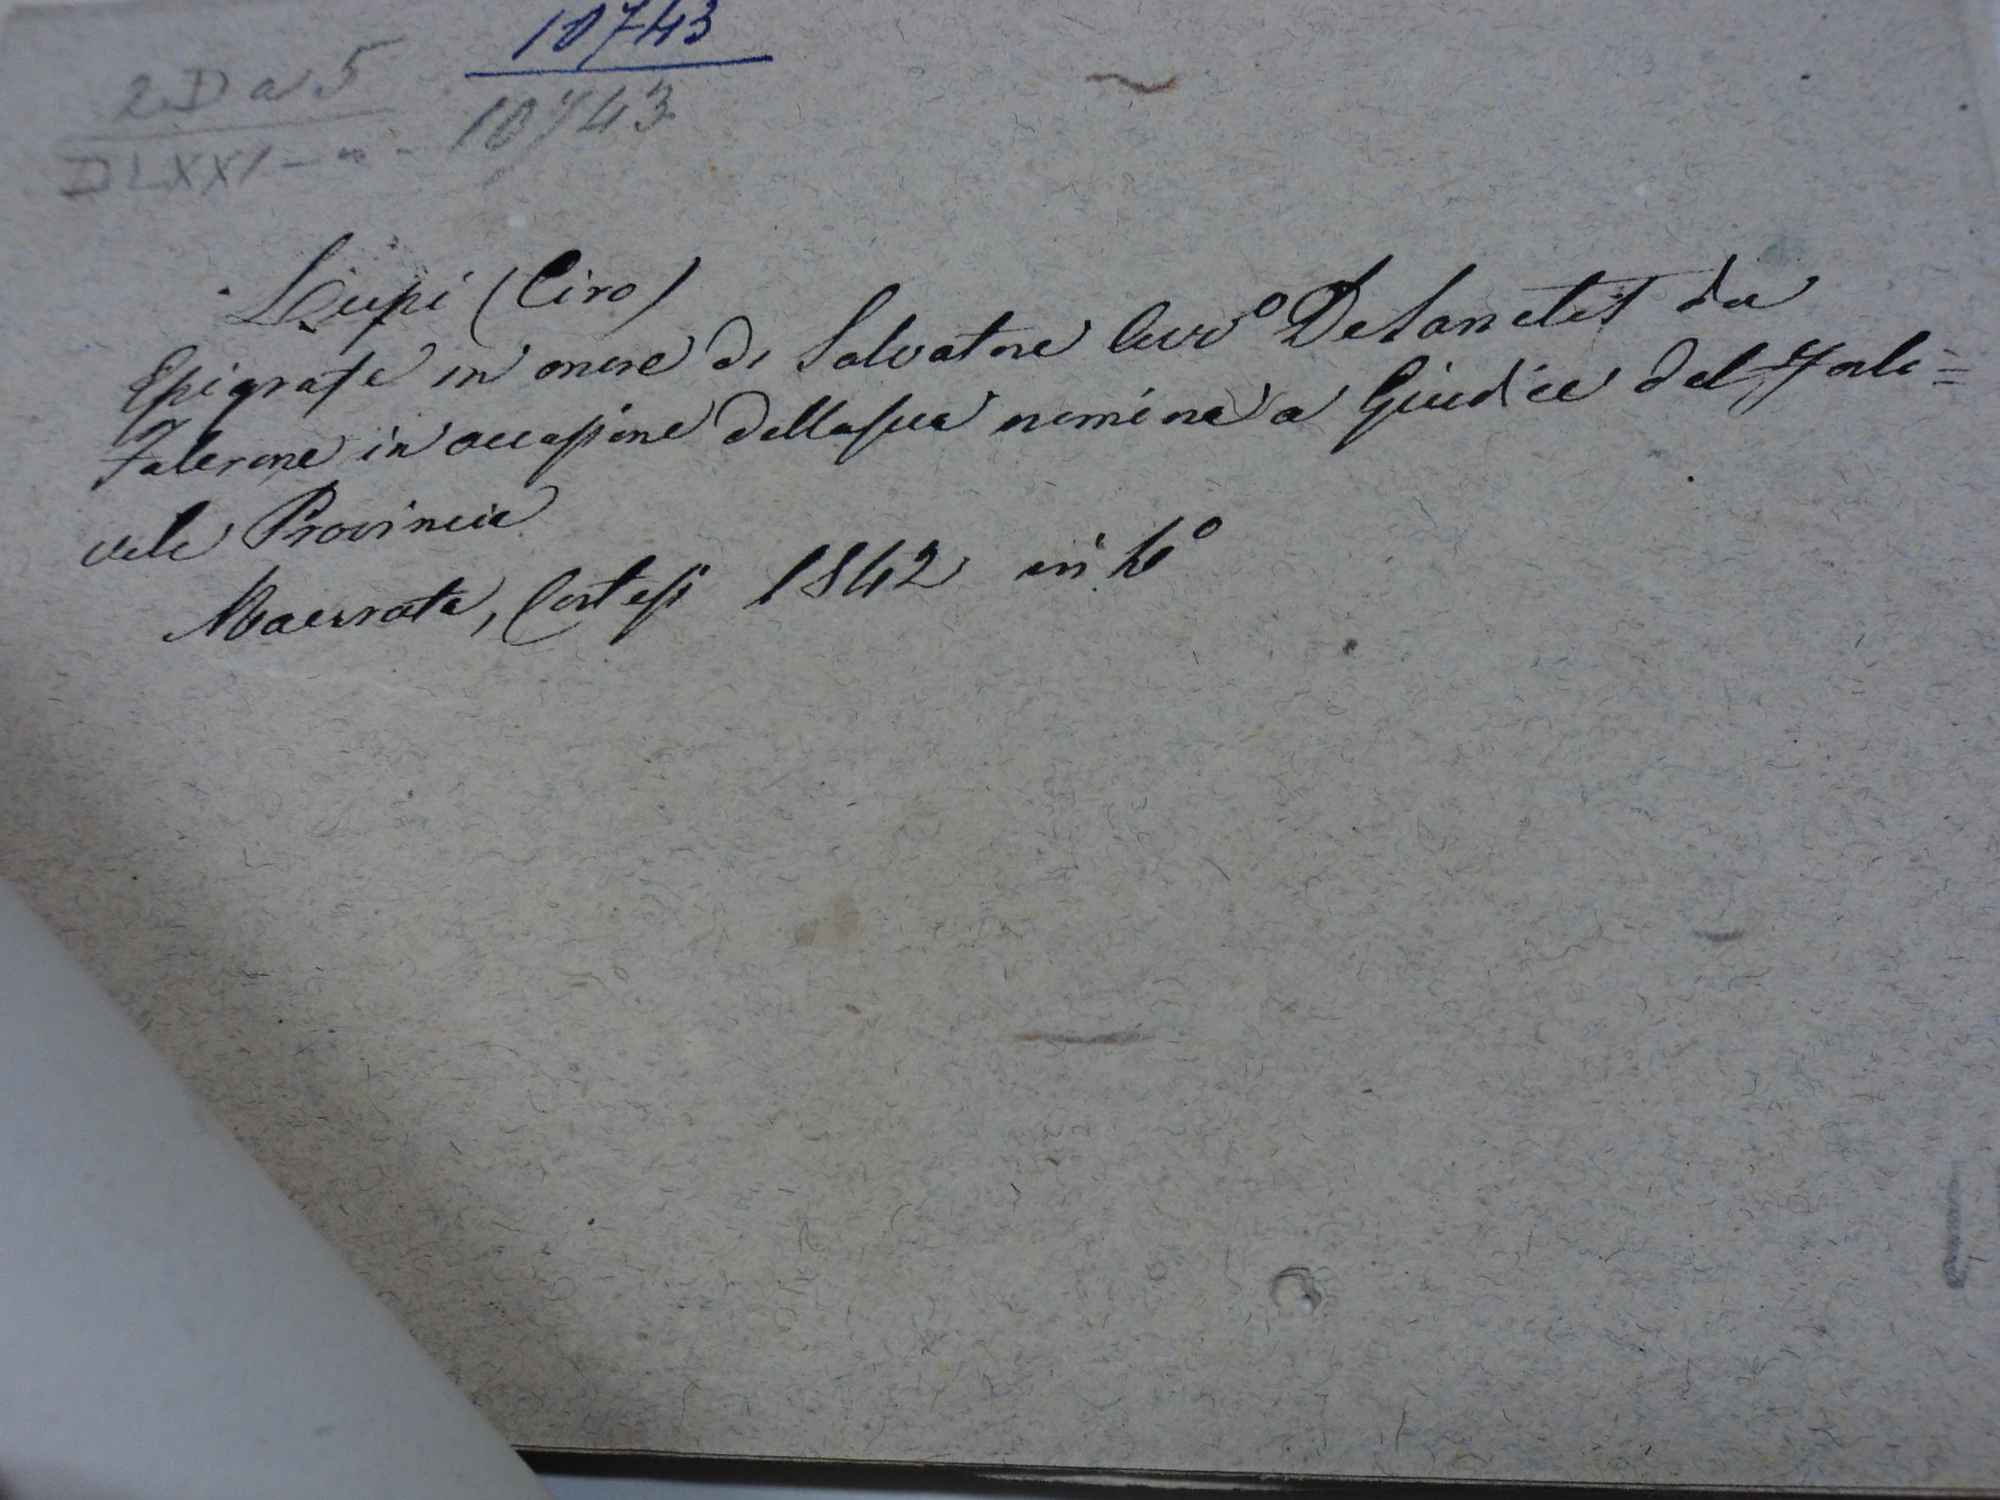 10743
2 D a 5
DLXXI - n - 10743
Lupi (Ciro)
Epigrafe in onore di Salvatore Avv.º DeSanctis da
Falerone in occasione della sua nomina a Giudice del Forli=
vele Provincia
Macerata, Cortesi 1842 in 4º